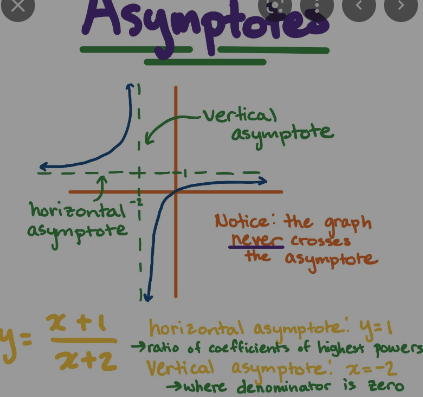 Asymptotes
vertical
asymptote
1
-2
horizontal
asymptote
Notice: the graph
never crosses
the asymptote
y = x + 1
x + 2
horizontal asymptote: y = 1
→ ratio of coefficients of highest powers
vertical asymptote: x = -2
→ where denominator is zero